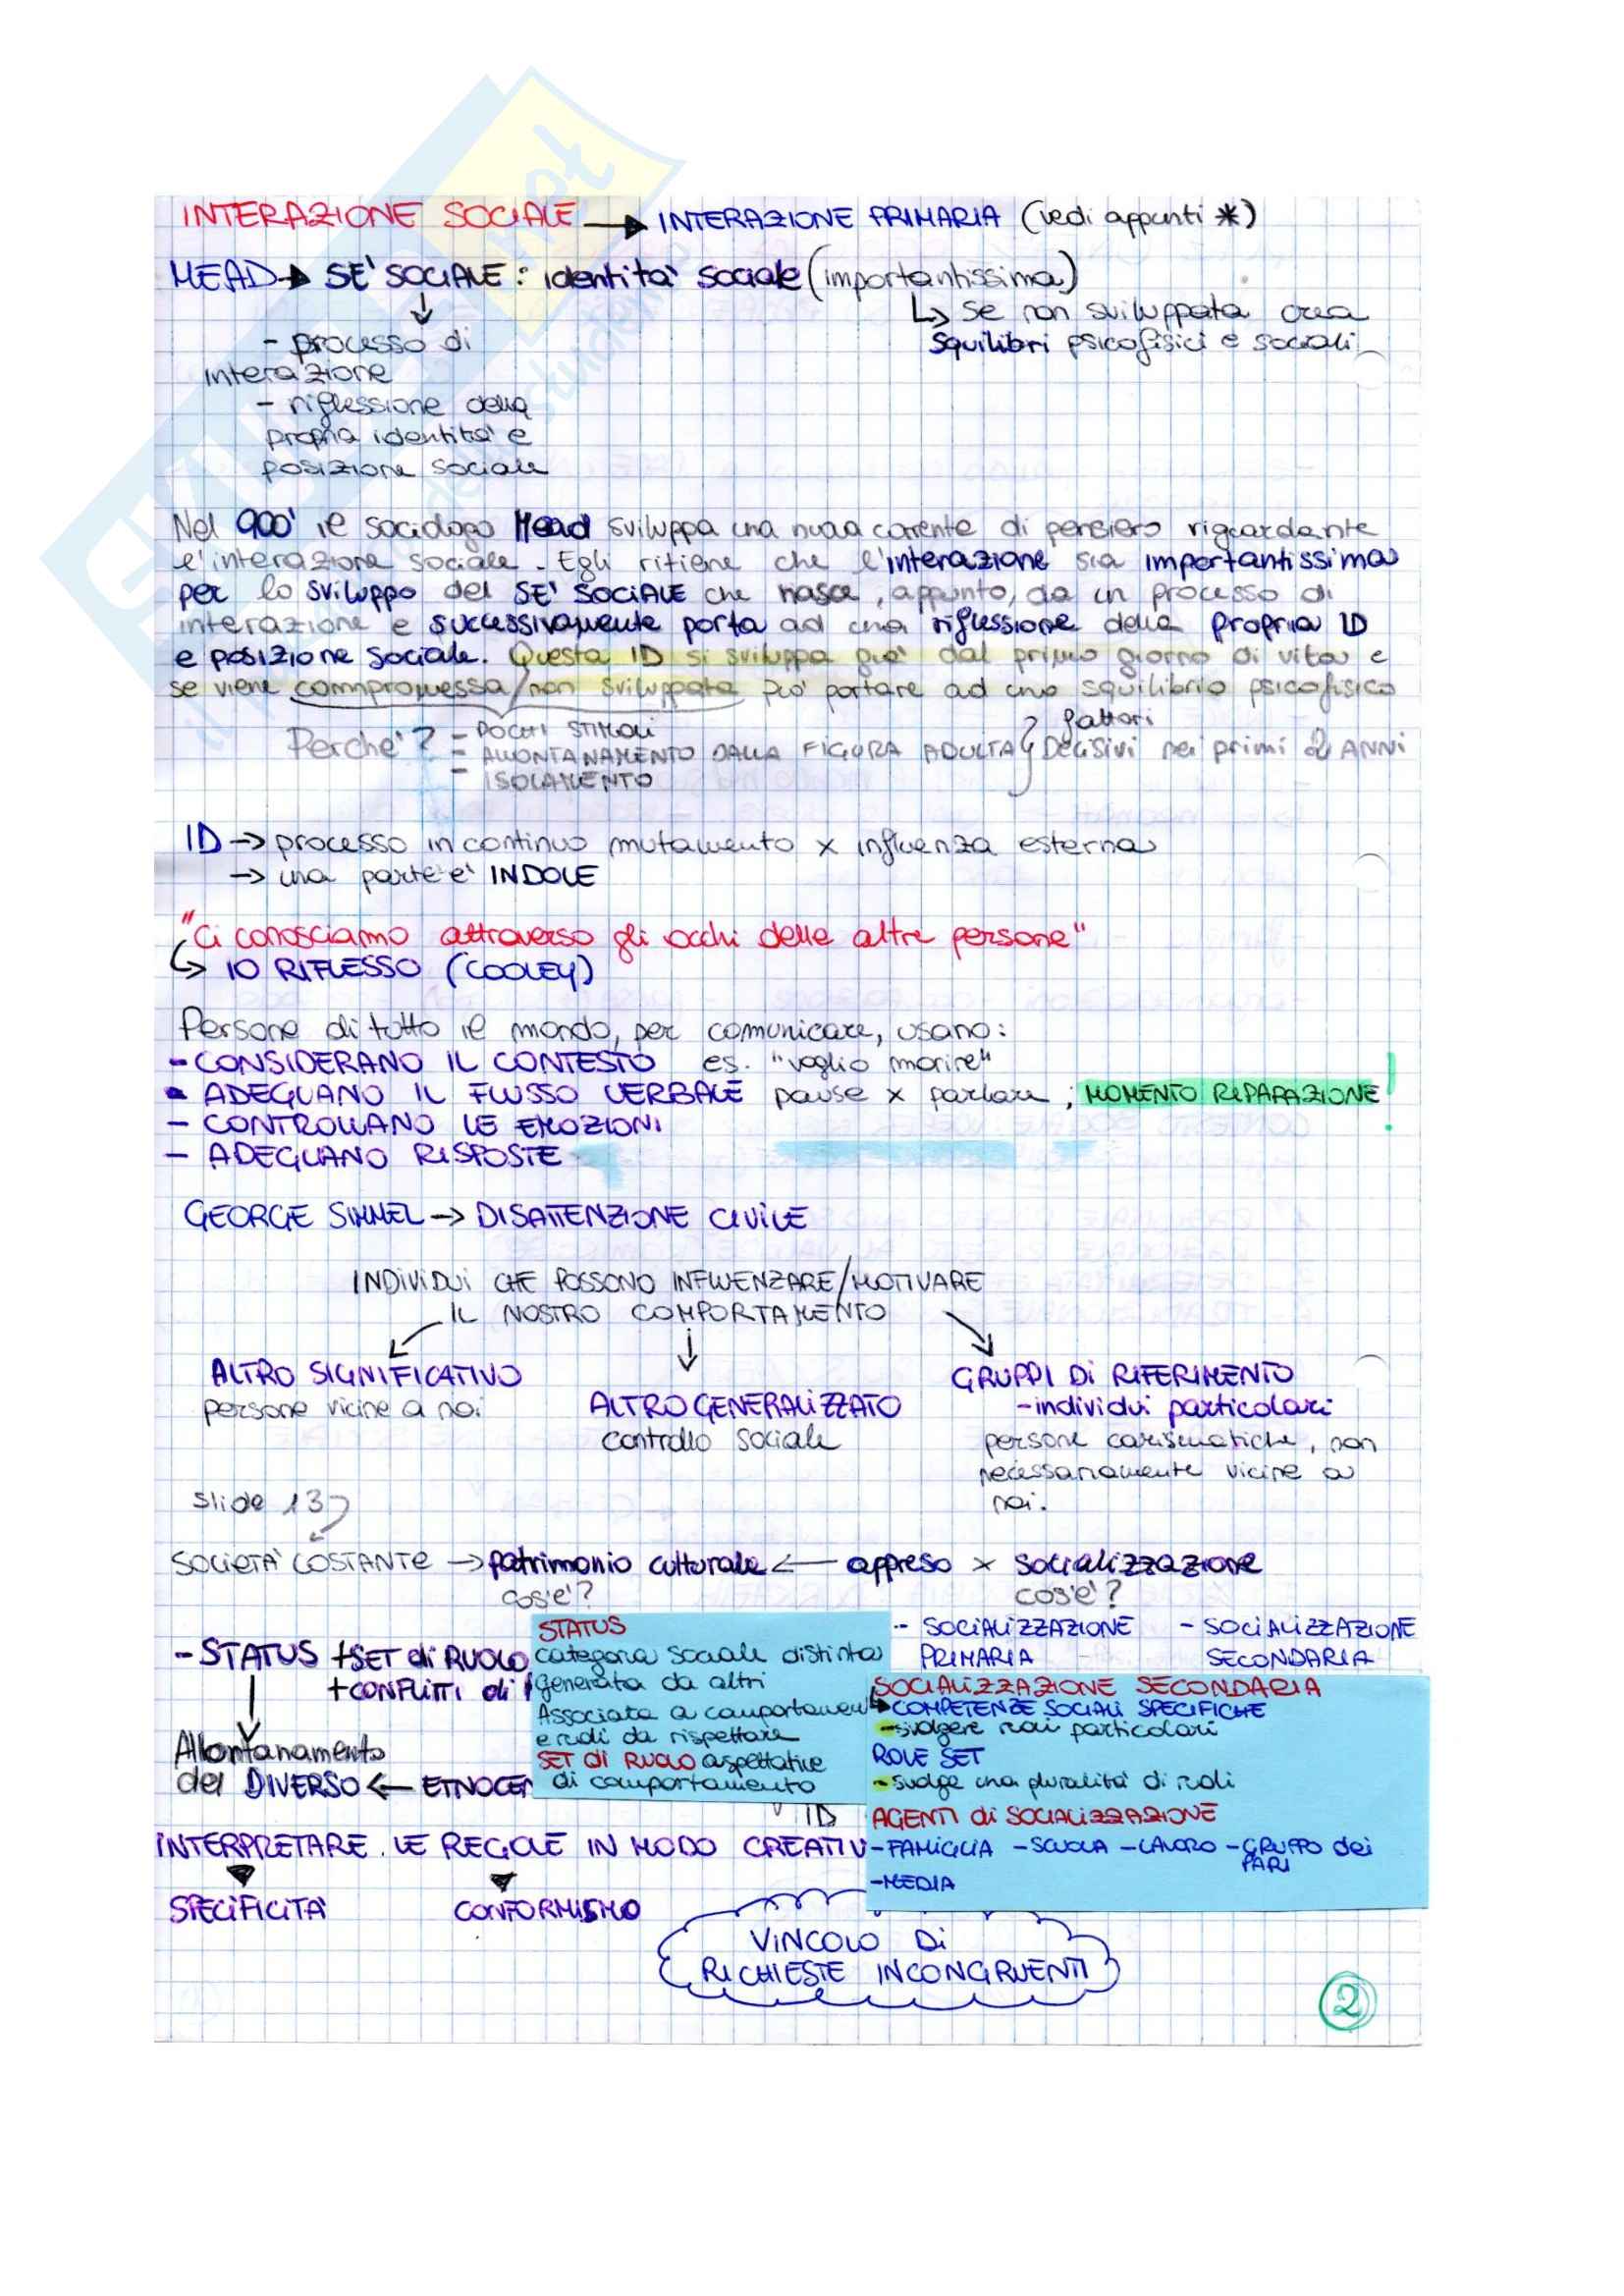 INTERAZIONE SOCIALE → INTERAZIONE PRIMARIA (vedi appunti *)
MEAD → SE' SOCIALE: identità sociale (importantissima)
↳ se non sviluppata crea
squilibri psicofisici e sociali
- processo di
interazione
- riflessione della
propria identità e
posizione sociale
Nel 900' il sociologo Mead sviluppa una nuova corrente di pensiero riguardante
l'interazione sociale. Egli ritiene che l'interazione sia importantissima
per lo sviluppo del SE' SOCIALE che nasce, appunto, da un processo di
interazione e successivamente porta ad una riflessione della propria ID
e posizione sociale. Questa ID si sviluppa già dal primo giorno di vita e
se viene compromessa/non sviluppata può portare ad uno squilibrio psicofisico
Perché?
- POCHI STIMOLI
- ALLONTANAMENTO DALLA FIGURA ADULTA
- ISOLAMENTO
fattori
Decisivi nei primi 2 ANNI
ID → processo in continuo mutamento x influenza esterna
→ una parte è INDOLE
"Ci conosciamo attraverso gli occhi delle altre persone"
↳ IO RIFLESSO (COOLEY)
Persone di tutto il mondo, per comunicare, usano:
- CONSIDERANO IL CONTESTO es. "voglio morire"
- ADEGUANO IL FLUSSO VERBALE pause x parlare; MOMENTO RIPARAZIONE!
- CONTROLLANO LE EMOZIONI
- ADEGUANO RISPOSTE
GEORGE SIMMEL → DISATTENZIONE CIVILE
INDIVIDUI CHE POSSONO INFLUENZARE/MOTIVARE
IL NOSTRO COMPORTAMENTO
ALTRO SIGNIFICATIVO
persone vicine a noi
ALTRO GENERALIZZATO
controllo sociale
GRUPPI DI RIFERIMENTO
- individui particolari
persone carismatiche, non
necessariamente vicine a
noi.
slide 13
SOCIETA' COSTANTE → patrimonio culturale ← appreso x socializzazione
cos'è? cos'è?
- STATUS + SET di RUOLO
+ CONFLITTI di
Allontanamento
del DIVERSO ← ETNOCE
STATUS
categoria sociale distinta
generata da altri
Associata a comportamenti
e ruoli da rispettare
SET di RUOLO aspettative
di comportamento
- SOCIALIZZAZIONE
PRIMARIA
- SOCIALIZZAZIONE
SECONDARIA
SOCIALIZZAZIONE SECONDARIA
→ COMPETENZE SOCIALI SPECIFICHE
- svolgere ruoi particolari
ROLE SET
- svolge una pluralità di ruoli
AGENTI di SOCIALIZZAZIONE
- FAMIGLIA - SCUOLA - LAVORO - GRUPPO dei
PARI
- MEDIA
ID
INTERPRETARE LE REGOLE IN MODO CREATIV
SPECIFICITA'
CONFORMISMO
VINCOLO DI
RICHIESTE INCONGRUENTI
2